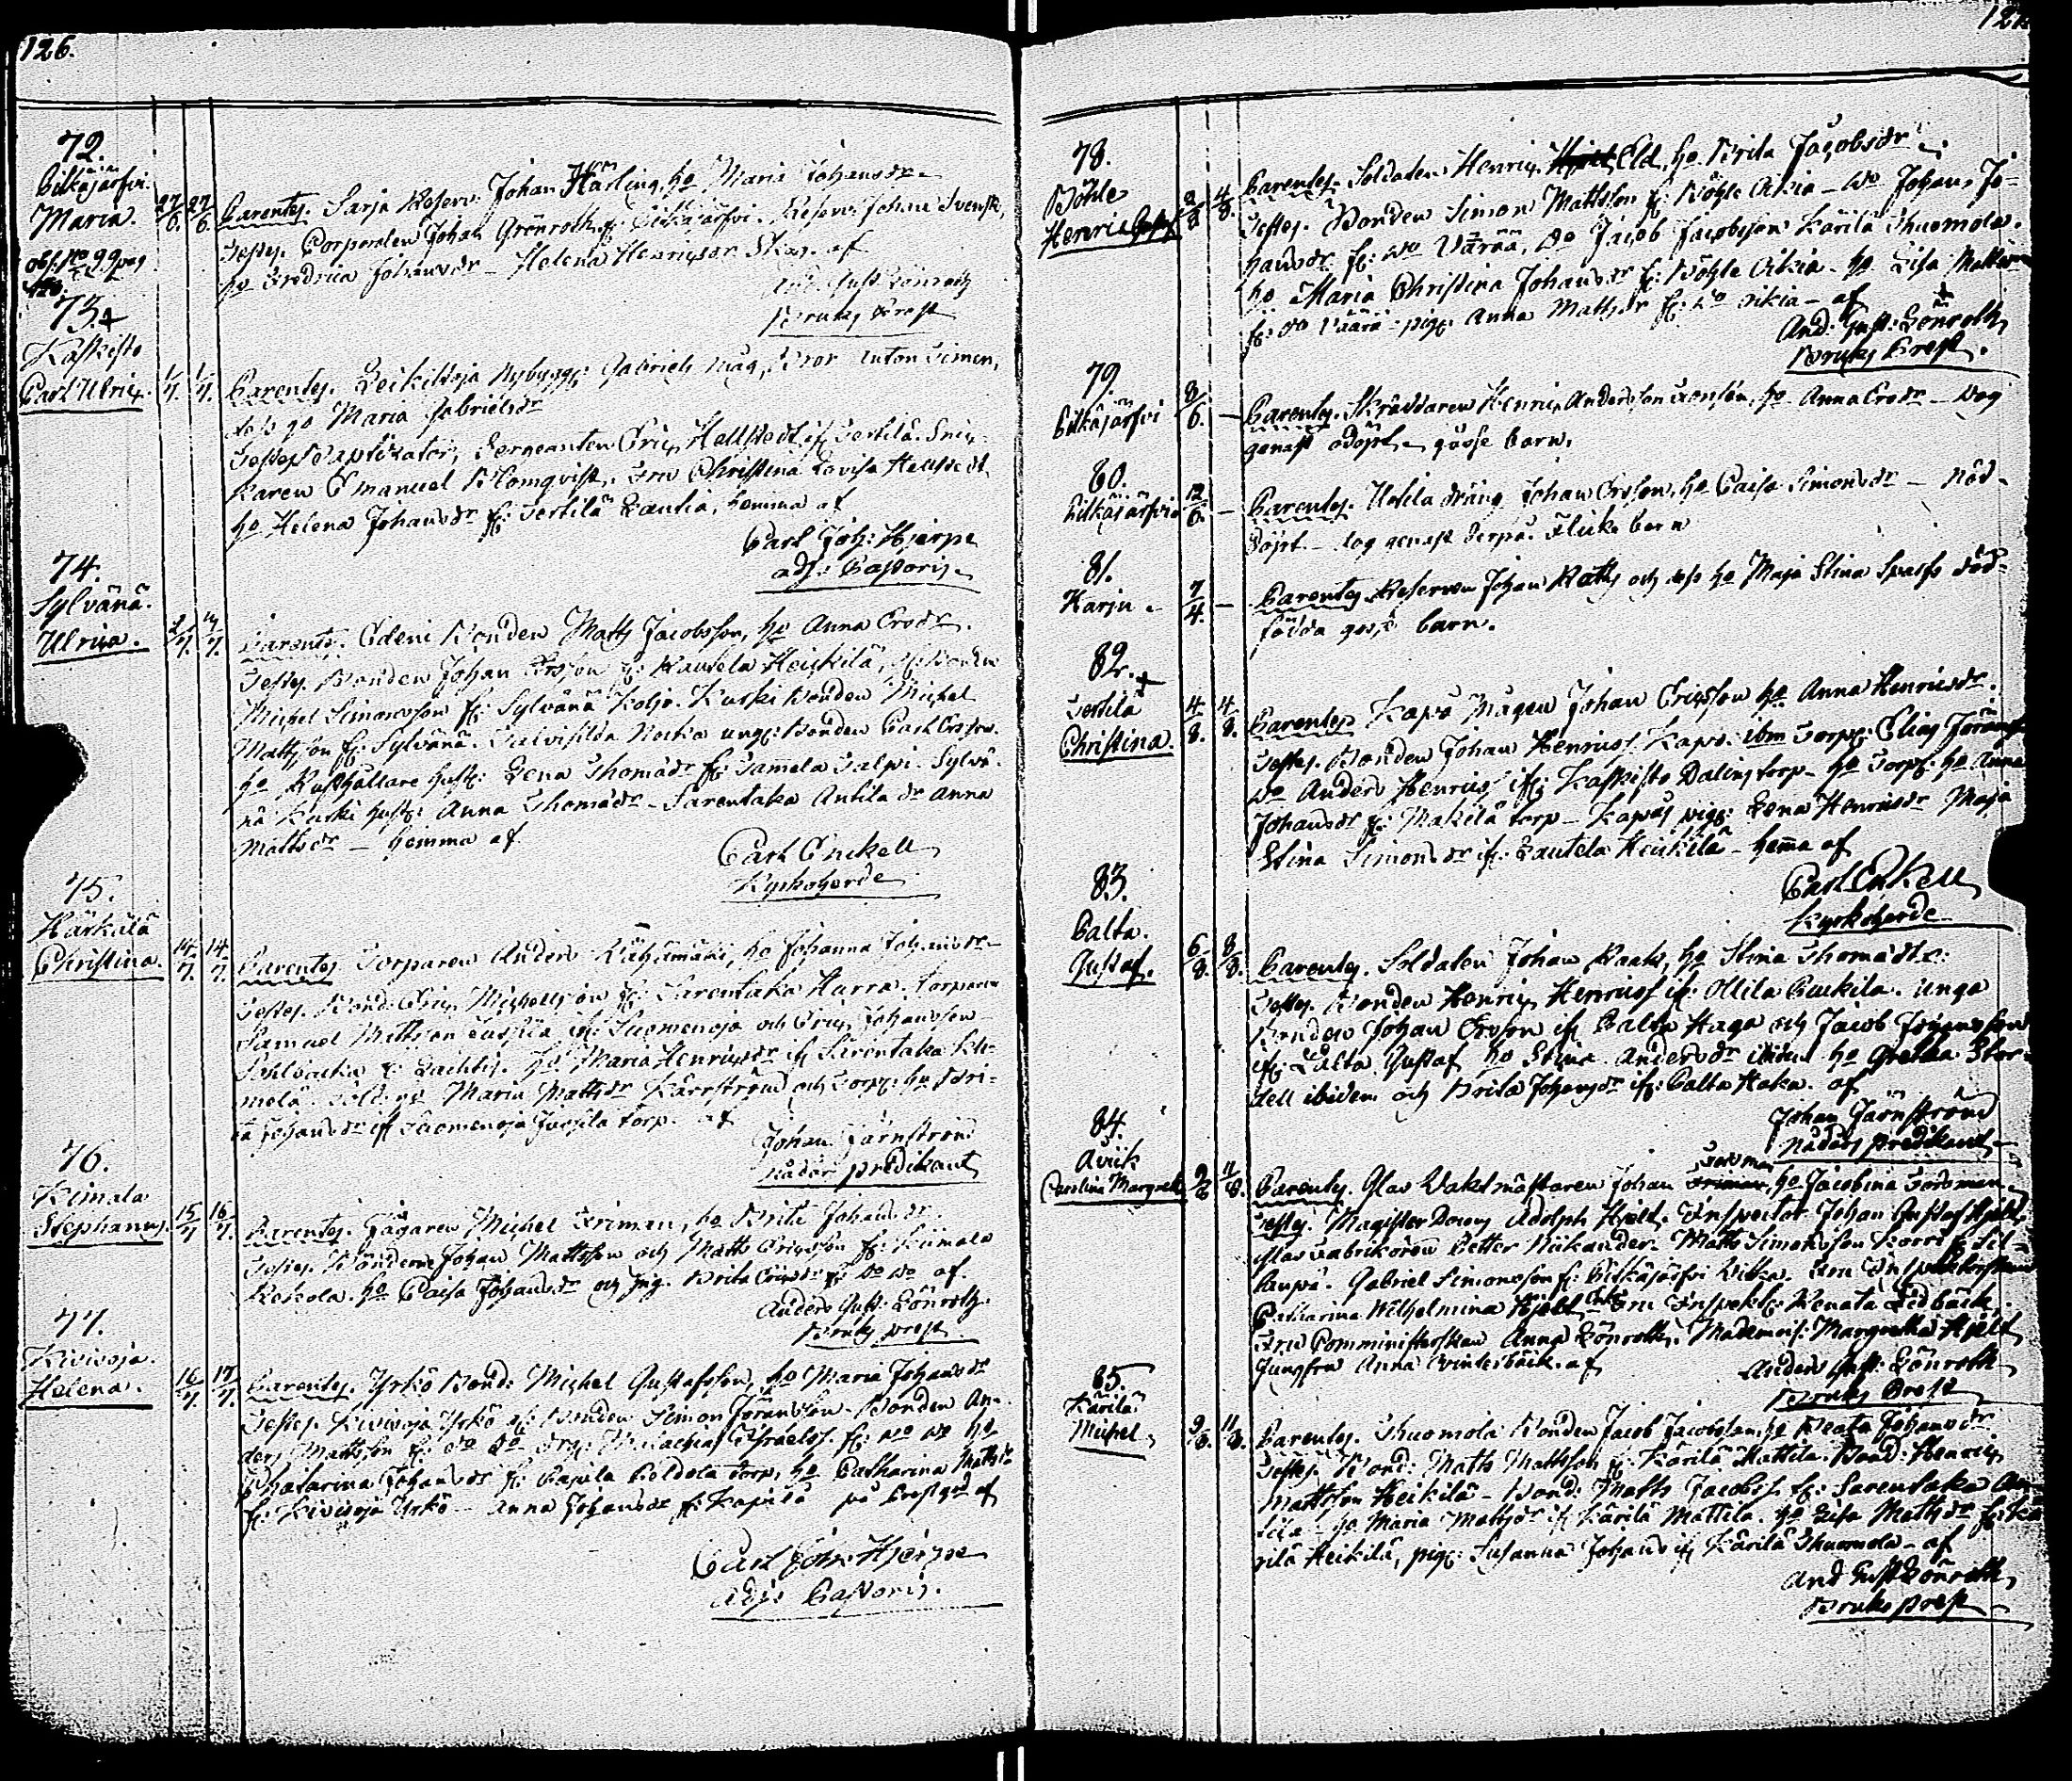 126.
72.
Pitkäjärfvi.
Maria. 27/6. 27/6.
Parentes. Sarja Reserv. Johan Härling, ho Maria Johansdr
Testes. Corporalen Johan Grönroth fr. Pitkäjärfvi. Reserv. Johan Svensk,
ho Fredrica Johansdr – Helena Henricsdr Skog. af
And. Gust. Lönroth
Bruks Prest
73.+
Kaskisto
Carl Ulric. 1/7. 1/7.
Parentes. Leikikoja Nybygg: Gabriels måg, Bror Anton Simon,
dess ho Maria Gabrielsdr
Testes Baptisator, Sergeanten Eric Hellstedt if Tertilä. Sni-
karen Emanuel Blomqvist, Fru Christina Lovisa Hellstedt
ho Helena Johansdr fr. Tertilä Lautia, hemma af
Carl Joh: Hjerpe
adj: Pastoris.
74.
Sylvänä.
Ulrica. 2/7. 4/7.
Parentes. Edeni Bonden Matts Jacobsson, ho Anna Ersdr.
Testes. Bonden Johan Ersson fr. Rautela Heickilä, Bonden
Michel Simonsson fr. Sylvänä Koljo. Kurki Bonden Michel
Mattsson fr. Sylvänä. unge Bonden Carl Ersson.
ho Rusthållare hust: Lena Thomædr fr. Tamela Talpi. Sylvä-
nä Kurki hust: Anna Thomædr – Sarentaka Antila dr Anna
Mattsdr – hemma af
Carl Enckell
Kyrkoherde
75.
Härkälä
Christina. 14/7. 14/7.
Parentes Torparen Anders, ho Johanna Johansdr –
Testes. Bond: Eric Michelsson fr. Sarentaka Hurra. torparen
Samuel Mattsson if Suomenoja och Eric Johansson
fr. Lachtis. ho Maria Henricsdr if Sarentaka Kli-
melä. Sold: ho Maria Mattsdr Kärrström och Torp: ho Bri-
ta Johansdr if Suomenoja Jussila torp. af
Johan Järnström
Nådårs predikant
76.
Kimala
Stephanus. 15/7 16/7.
Parentes. Jägaren Michel Friman, ho Brita Johansdr.
Testes. Bönderne Johan Mattsson och Matts Ericsson fr. Kimala
Kokola. ho Caisa Johansdr och pig. Brita Ericsdr fr. do do af.
Anders Gust: Lönroth.
Bruks prest.
77.
Kivisoja.
Helena. 16/7. 17/7.
Parentes. Yrkö Bond: Michel Gustafsson, ho Maria Johansdr
Testes. Kivisoja Yrkö if Bonden Simon Göransson – Bonden An-
ders Mattsson fr. do do dräg. Malachias Israelss. fr. do do ho
Chatarina Johansdr fr. Papila torp, ho Catharina Mattsdr
fr. Kivisoja Yrkö – Anna Johansdr fr. Kapila på Prestgd af
Carl Joh: Hjerpe
Adj: Pastoris.
78.
Böhle
Henric Gustaf 2/8 4/8.
Parentes. Soldaten Henric Eld, ho Brita Jacobsdr
Testes. Bonden Simon Mattsson fr. Böhle Rikia – do Johan Jo-
hansdr fr. do Väärä, do Jacob Jacobsson Kärilä Thuomola.
ho Maria Christina Johansdr fr. Böhle Rikia. ho Lisa Mattsdr
fr. do Väärä – pig: Anna Mattsdr fr. do Rikia – af
And: Gust: Lönroth,
Bruks Prest.
79.
Pitkäjärfvi 8/6. –
Parentes. Skräddaren Henric Andersson, ho Anna Ersdr – dog
genast odöpt – gosse barn.
80.
Pitkäjärfvi 12/6. –
Parentes. Uotila dräng Johan Ersson, ho Caisa Simonsdr – Nöd-
döpt – dog genast derpå. Flicke barn
81.
Harju. 7/4. –
Parentes. Reserven Johan Ratts och dess ho Maja Stina Spaiss död-
födda gosse barn.
82.+
Tertilä
Christina. 4/8. 4/8.
Parentes Kapo Mågen Johan Ericsson ho Anna Henricsdr.
Testes. Bonden Johan Henricss. Kapo. ibm Torp: Elias
do Anders Henricss. if Kaskisto Dalins torp – ho Torp: ho Anna
Johansdr fr. Makilä torp – Kapas pig: Lena Henricsdr Maja
Stina Simonsdr if: Lautela Heickilä – hema af
Carl Enckell
Kyrkoherde
83.
Palta.
Gustaf. 6/8 8/8.
Parentes. Soldaten Johan Raaks, ho Stina Thomædr.
Testes. Bonden Henric Henricss if Ollila. unga
Bonden Johan Ersson if Palta Haga och Jacob Johansson
if. Palta. Gustaf ho Stina Andersdr ibidem ho Gretha Stor-
dell ibidem och Brita Johansdr if: Palta Haka. af
Johan Järnström
Nådårs predikant
84.
Åvik
Carolina Margreth 9/8 11/8.
Parentes. Glas Vaktmästaren Johan Fordman, ho Jacobina Fordman.
Testes. Magister Docens Adolph Hjelt. Inspector Johan Gustaf Hjelt,
Glas Fabrikören Petter Niikander. Matts Simonsson Korri fr. Sil-
kupä. Gabriel Simonsson fr. Pitkäjärfvi. Fru Inspektorskan
Catharina Wilhelmina Hjelt Fru Inspekt: Renata Lidbäck,
Fru Comministerskan Anna Lönroth. Mademois: Margretha Hjelt
Jungfru Anna Winterbäck. af
Anders Gust: Lönroth
Bruks Prest
85.
Kärilä
Michel. 9/8. 11/8.
Parentes. Thuomola Bonden Jacob Jacobsson, ho Beata Johansdr
Testes. Bond: Matts Mattsson fr. Kärilä Mattila. Bond: Henric
Mattsson Heikilä – Bond: Matts Jacobss. fr. Sarentaka An-
tila – ho Maria Mattsdr if Kärilä Mattila. ho Lisa Mattsdr fr. Kä-
rilä Heikilä, pig: Susanna Johansd if Kärilä Thuomola – af
And Gust Lönroth,
Bruks prest